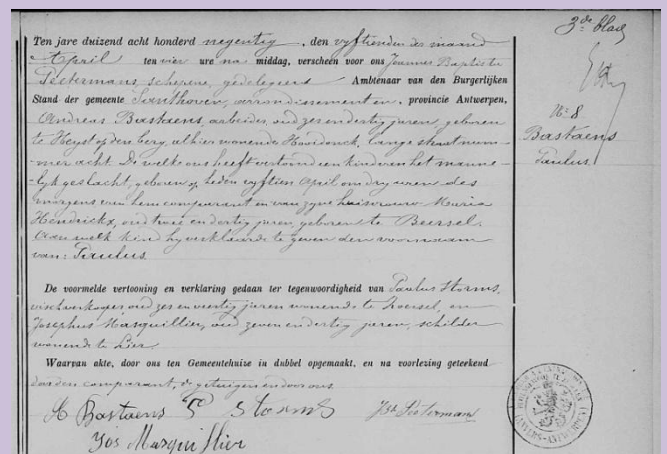 3de blad
Ten jare duizend acht honderd negentig, den vyftienden der maand
April ten vier ure na middag, verscheen voor ons Joannes Baptiste
Peetermans, schepene, gedelegeerd Ambtenaar van den Burgerlijken
Stand der gemeente Santhoven, arrondissement en provincie Antwerpen,
Andreas Bastaens, arbeider, oud zes en dertig jaren, geboren
te Heyst op den berg, alhier wonende Hooidonck, lange straat num-
mer acht. De welke ons heeft vertoond een kind van het manne-
lyk geslacht, geboren, heden vyftien April om dry uren des
morgens van hem comparant en van zyne huisvrouw Maria
Hendrickx, oud twee en dertig jaren, geboren te Beersel.
Aan welk kind hy verklaarde te geven den voornaam
van: Paulus.
De voormelde vertooning en verklaring gedaan ter tegenwoordigheid van Paulus Storms,
oud zes en veertig jaren wonende te Zoersel, en
Josephus Masquillier, oud zeven en dertig jaren, schilder
wonende te Lier.
Waarvan akte, door ons ten Gemeentehuize in dubbel opgemaakt, en na voorlezing geteekend
door den comparant, de getuigen en door ons
A Bastaens P Storms Jbte Peetermans
Jos Masquillier
No 8
Bastaens
Paulus.